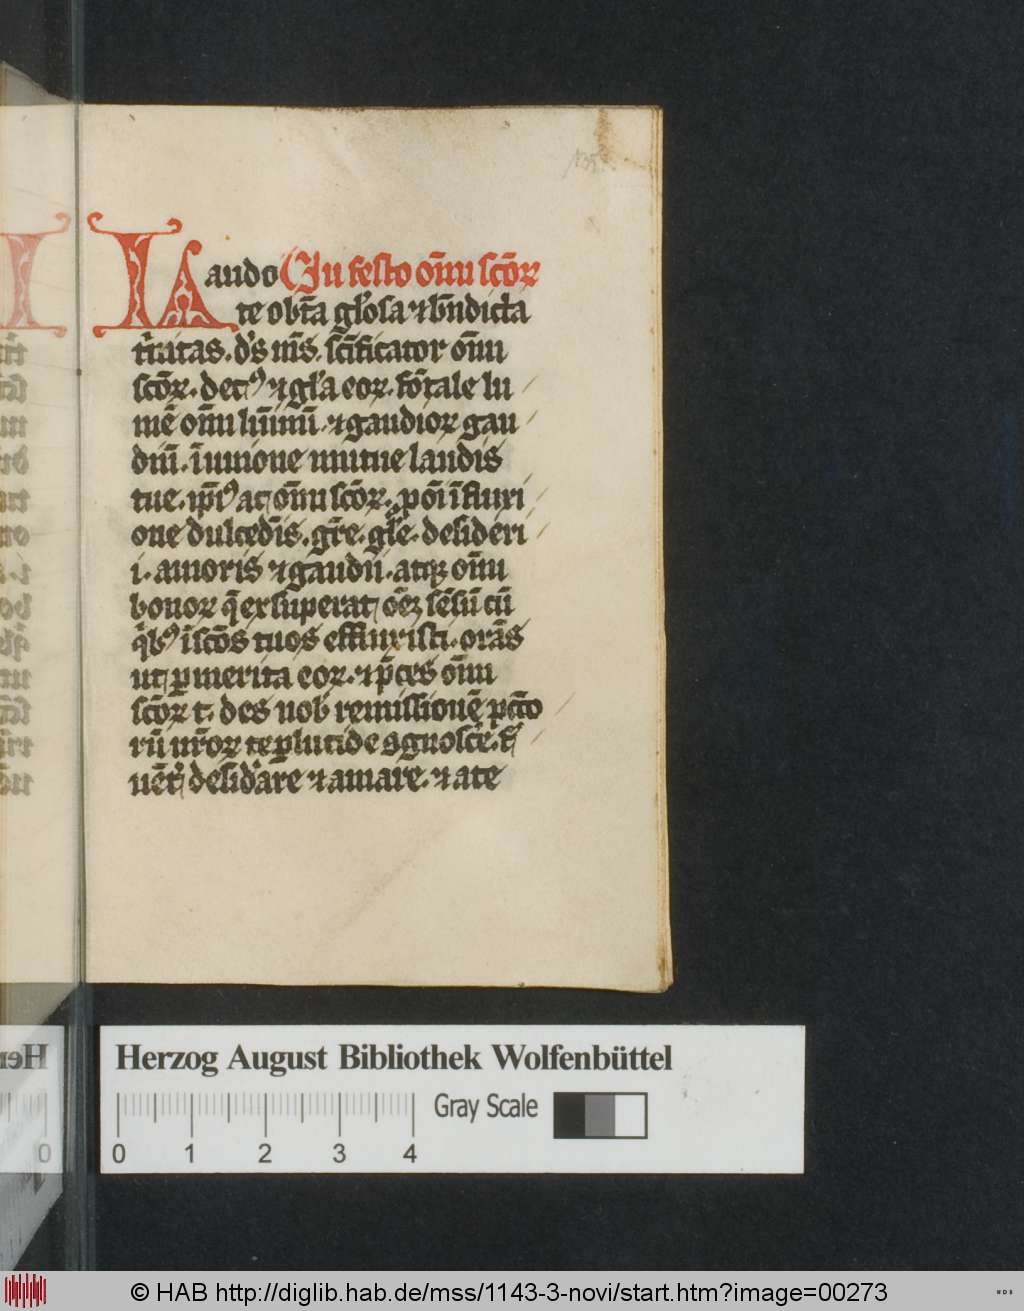 Laudo In festo om̄iu sc̄oꝝ
te ob̄ta gl'osa ⁊ b̄ndicta
t'nitas. d's n̄rs. sc̄ificator om̄iu
sc̄oꝝ. decꝰ ⁊ gl'a eoꝝ. fōtale lu
mē om̄iu lūinū. ⁊ gaudioꝝ gau
diū. ī unione mutue laudis
tue. ip̄iꝰ ac om̄iu sc̄oꝝ. ī fluxi
one dulcedīs. gr̄e. gl'e. desideri
i. amoris ⁊ gaudii. atqꝫ om̄iu
bonoꝝ q̄ exsuperat om̄eꝫ sēsū cū
q'bꝰ ī sc̄os tuos effluxisti. orās
ut ꝑ merita eoꝝ. ⁊ p̄ces om̄iu
sc̄oꝝ t. des nob' remissionē pc̄cto
rū nr̄oꝝ te ꝑlucide ꝯgnosce'.
desid'are ⁊ amare. ⁊ a te
Herzog August Bibliothek Wolfenbüttel
Gray Scale
0 1 2 3 4
© HAB http://diglib.hab.de/mss/1143-3-novi/start.htm?image=00273